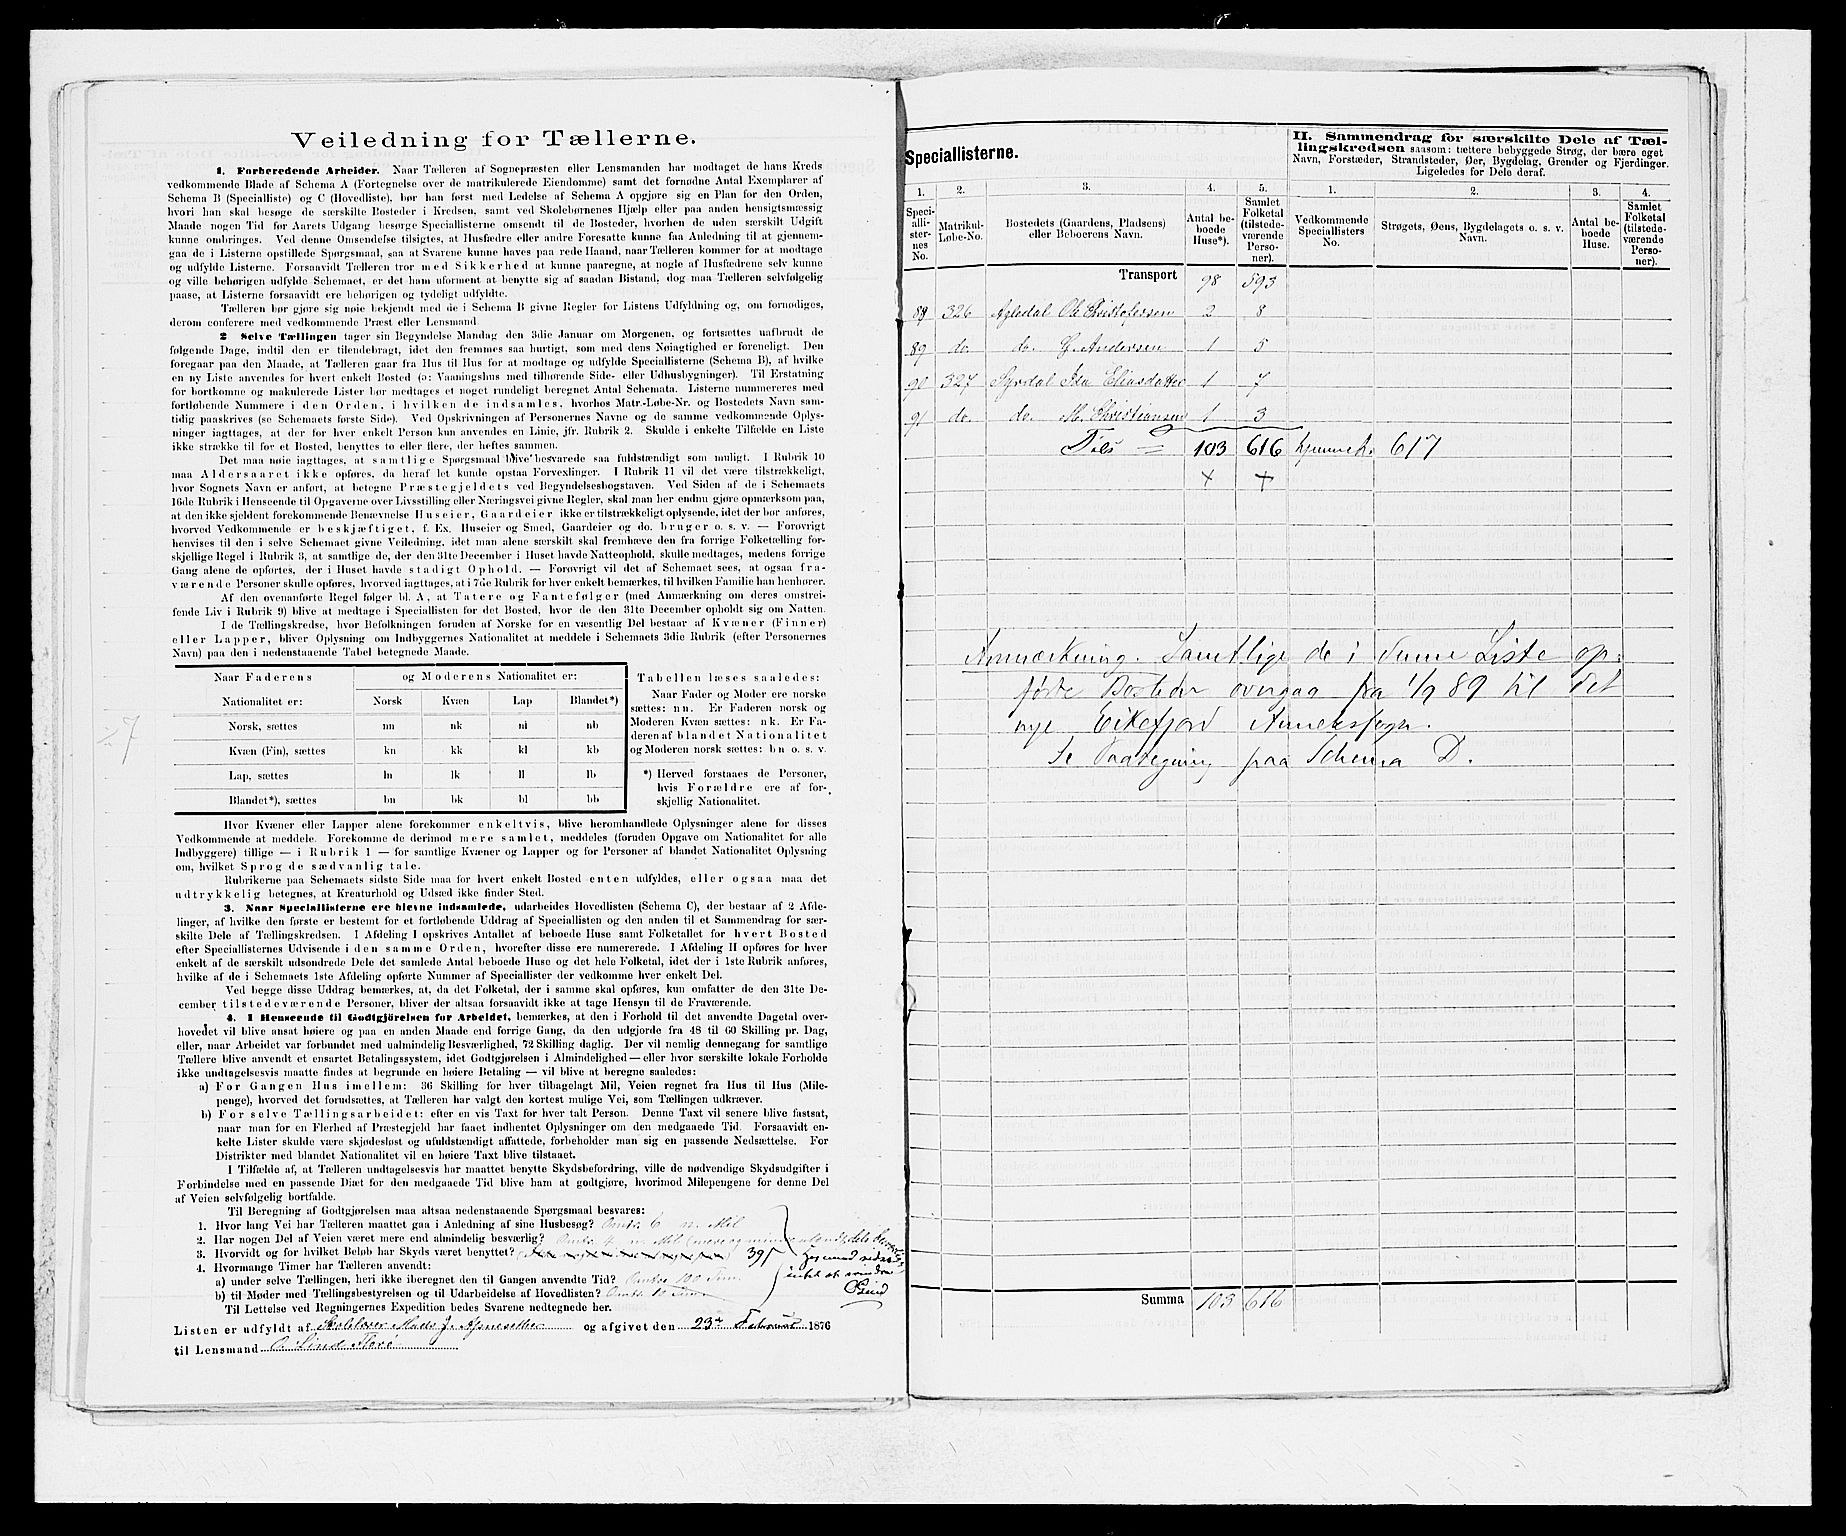 Veiledning for Tællerne.
1. Forberedende Arbeider. Naar Tælleren af Sognepræsten eller Lensmanden har modtaget de hans Kreds
vedkommende Blade af Schema A (Fortegnelse over de matrikulerede Eiendomme) samt det fornødne Antal Exemplarer af
Schema B (Specialliste) og C (Hovedliste), bør han først med Ledelse af Schema A opgjøre sig en Plan for den Orden,
hvori han skal besøge de særskilte Bosteder i Kredsen, samt ved Skolebørnenes Hjælp eller paa anden hensigtsmæssig
Maade nogen Tid før Aarets Udgang besørge Speciallisterne omsendt til de Bosteder, hvorhen de uden særskilt Udgift
kunne ombringes. Ved denne Omsendelse tilsigtes, at Husfædre eller andre Foresatte kunne faa Anledning til at gjennem-
gaa de i Listerne opstillede Spørgsmaal, saa at Svarene kunne haves paa rede Haand, naar Tælleren kommer for at modtage
og udfylde Listerne. Forsaavidt Tælleren tror med Sikkerhed at kunne paaregne, at nogle af Husfædrene selv kunne
og ville behørigen udfylde Schemaet, er det ham uforment at benytte sig af saadan Bistand, dog maa Tælleren selvfølgelig
paase, at Listerne forsaavidt ere behørigen og tydeligt udfyldte.
Tælleren bør gjøre sig nøie bekjendt med de i Schema B givne Regler for Listens Udfyldning og, om fornødiges,
derom conferere med vedkommende Præst eller Lensmand.
2 Selve Tællingen tager sin Begyndelse Mandag den 3die Januar om Morgenen, og fortsættes uafbrudt de
følgende Dage, indtil den er tilendebragt, idet den fremmes saa hurtigt, som med dens Nøiagtighed er foreneligt. Den
foregaar paa den Maade, at Tælleren gaar fra Hus til Hus for at modtage og udfylde Speciallisterne (Schema B), af hvilke
en ny Liste anvendes for hvert enkelt Bosted (ɔ: Vaaningshus med tilhørende Side- eller Udhusbygninger). Til Erstatning
for bortkomne og makulerede Lister bør medtages et noget rundeligt beregnet Antal Schemata. Listerne nummereres med
fortløbende Nummere i den Orden, i hvilken de indsamles, hvorhos Matr.-Løbe-Nr. og Bostedets Navn sam-
tidig paaskrives (se Schemaets første Side). Ved Opskrivningen af Personernes Navne og de samme vedkommende Oplys-
ninger iagttages, at der for hver enkelt Person kun anvendes en Linie, jfr. Rubrik 2. Skulde i enkelte Tilfælde en Liste
ikke strække til for et Bosted, benyttes to eller flere, der heftes sammen.
Det maa nøie iagttages, at samtlige Spørgsmaal blive besvarede saa fuldstændigt som muligt. I Rubrik 10
maa Aldersaaret ikke opføres, da heraf let kunde opstaa Forvexlinger. I Rubrik 11 vil det være tilstrækkeligt,
hvor Sognets Navn er anført, at betegne Præstegjeldets ved Begyndelsesbogstaven. Ved Siden af de i Schemaets
16de Rubrik i Henseende til Opgaverne over Livsstilling eller Næringsvei givne Regler, skal man her endnu gjøre opmærksom paa,
at den ikke sjeldent forekommende Benævnelse Huseier, Gaardeier ikke er tilstrækkeligt oplysende, idet der bør anføres,
hvorved Vedkommende er beskjæftiget, f. Ex. Huseier og Smed, Gaardeier og do. bruger o. s. v. — Forøvrigt
henvises til den i selve Schemaet givne Veiledning, idet man alene særskilt skal fremhæve den fra forrige Folketælling for-
skjellige Regel i Rubrik 3, at samtlige de, der den 31te December i Huset havde Natteophold, skulle medtages, medens forrige
Gang alene de opførtes, der i Huset havde stadigt Ophold. — Forøvrigt vil det af Schemaet sees, at ogsaa fra-
værende Personer skulle opføres, hvorved iagttages, at i 7de Rubrik for hver enkelt bemærkes, til hvilken Familie han henhører.
Af den ovenanførte Regel følger bl. A, at Tatere og Fantefølger (med Anmærkning om deres omstrei-
fende Liv i Rubrik 9) blive at medtage i Speciallisten for det Bosted, hvor de den 31te December opholdt sig om Natten.
I de Tællingskredse, hvor Befolkningen foruden af Norske for en væsentlig Del bestaar af Kvæner (Finner)
eller Lapper, bliver Oplysning om Indbyggernes Nationalitet at meddele i Schemaets 3die Rubrik (efter Personernes
Navn) paa den i nedenstaaende Tabel betegnede Maade.
Naar Faderens og Moderens Nationalitet er:
Nationalitet er: Norsk Kvæn Lap Blandet*)
Norsk, sættes nn nk nl nb
Kvæn (Fin), sættes kn kk kl kb
Lap, sættes ln lk ll lb
Blandet*), sættes bn bk bl bb
Tabellen læses saaledes:
Naar Fader og Moder ere norske
sættes: nn. Er Faderen norsk og
Moderen Kvæn sættes: nk. Er Fa-
deren af blandet Nationalitet
og Moderen norsk sættes: bn o. s. v.
*) Herved forstaaes de Personer,
hvis Forældre ere af for-
skjellig Nationalitet.
Hvor Kvæner eller Lapper alene forekommer enkeltvis, blive heromhandlede Oplysninger alene for disses
Vedkommende at meddele. Forekomme de derimod mere samlet, meddeles (foruden Opgave om Nationalitet for alle
Indbyggere) tillige — i Rubrik 1 — for samtlige Kvæner og Lapper og for Personer af blandet Nationalitet Oplysning
om, hvilket Sprog de sædvanlig tale.
Rubrikerne paa Schemaets sidste Side maa for hvert enkelt Bosted enten udfyldes, eller ogsaa maa det
udtrykkelig betegnes, at Kreaturhold og Udsæd ikke finder Sted.
3. Naar Speciallisterne ere blevne indsamlede, udarbeides Hovedlisten (Schema C), der bestaar af 2 Afde-
linger, af hvilke den første er bestemt for et fortløbende Uddrag af Speciallisten og den anden til et Sammendrag for sær-
skilte Dele af Tællingskredsen. I Afdeling I opskrives Antallet af beboede Huse samt Folketallet for hvert Bosted
efter Speciallisternes Udvisende i den samme Orden, hvorefter disse ere nummererede. I Afdeling II opføres for hver
enkelt af de særskilt udsondrede Dele det samlede Antal beboede Huse og det hele Folketal, idet der i 1ste Rubrik anføres,
hvilke af de i Schemaets 1ste Afdeling opførte Nummer af Speciallister der vedkomme hver enkelt Del.
Ved begge disse Uddrag bemærkes, at, da det Folketal, der i samme skal opføres, kun omfatter de den 31te De-
cember tilstedeværende Personer, bliver der altsaa forsaavidt ikke at tage Hensyn til de Fraværende.
4. I Henseende til Godtgjörelsen for Arbeidet, bemærkes, at den i Forhold til det anvendte Dagetal over-
hovedet vil blive ansat høiere og paa en anden Maade end forrige Gang, da den udgjorde fra 48 til 60 Skilling pr. Dag,
eller, naar Arbeidet var forbundet med ualmindelig Besværlighed, 72 Skilling daglig. Der vil nemlig dennegang for samtlige
Tællere blive anvendt et ensartet Betalingssystem, idet Godtgjørelsen i Almindelighed — eller hvor særskilte lokale Forholde
ikke undtagelsesvis maatte findes at begrunde en høiere Betaling — vil blive at beregne saaledes:
a) For Gangen Hus imellem: 36 Skilling for hver tilbagelagt Mil, Veien regnet fra Hus til Hus (Mile-
penge), hvorved det forudsættes, at Tælleren har valgt den kortest mulige Vei, som Tællingen udkræver.
b) For selve Tællingsarbeidet: efter en vis Taxt for hver talt Person. Denne Taxt vil senere blive fastsat,
naar man for en Flerhed af Præstegjeld har faaet indhentet Oplysninger om den medgaaede Tid. Forsaavidt en-
kelte Lister skulde være skjødesløst og ufuldstændigt affattede, forbeholder man sig en passende Nedsættelse. For
Distrikter med blandet Nationalitet vil en høiere Taxt blive tilstaaet.
I Tilfælde af, at Tælleren undtagelsesvis har maattet benytte Skydsbefordring, ville de nødvendige Skydsudgifter i
Forbindelse med en passende Diæt for den medgaaede Tid blive ham at godtgjøre, hvorimod Milepengene for denne Del
af Veien selvfølgelig bortfalde.
Til Beregning af Godtgjørelsen maa altsaa nedenstaaende Spørgsmaal besvares:
1. Hvor lang Vei har Tælleren maattet gaa i Anledning af sine Husbesøg? Omtr. 6 n. Mil
2. Har nogen Del af Veien været mere end almindelig besværlig? Omtr. 4 n. Mil
3. Hvorvidt og for hvilket Beløb har Skyds været benyttet? 39
4. Hvormange Timer har Tælleren anvendt:
a) under selve Tællingen, heri ikke iberegnet den til Gangen anvendte Tid? Omtr. 100 Tim.
b) til Møder med Tællingsbestyrelsen og til Udarbeidelse af Hovedlisten? Omtr. 10 Tim
Til Lettelse ved Regningernes Expedition bedes Svarene nedtegnede her.
Listen er udfyldt af Skolelærer Mads J. og afgivet den 23de Februar 1876
til Lensmand O. Lind Florø
27
Speciallisterne.
II. Sammendrag for særskilte Dele af Tæl-
lingskredsen saasom: tættere bebyggede Strøg, der bære eget
Navn, Forstæder, Strandsteder, Øer, Bygdelag, Grender og Fjerdinger.
Ligeledes for Dele deraf.
1. 2. 3. 4. 5. 1. 2. 3. 4.
Speci-
allis-
ternes
No.
Matrikul-
Løbe-No.
Bostedets (Gaardens, Pladsens)
eller Beboerens Navn.
Antal be-
boede
Huse*).
Samlet
Folketal
(tilstede-
værende
Perso-
ner).
Vedkommende
Speciallisters
No.
Strøgets, Øens, Bygdelagets o. s. v.
Navn.
Antal be-
boede
Huse.
Samlet
Folketal
(tilstede-
værende
Perso-
ner).
Transport 98 593
88 326 Ole Christofersen 2 8
89 do. do. Andersen 1 5
90 327 Syrdal Ida Eliasdatter 1 7
91 do. do. M. Christiansen 1 3
103 616 617
× +
Anmærkning. Samtlige de i denne Liste op-
førte Bosteder overgaa fra 1/9 89 til det
nye Eikefjord Annexsogn.
Se Paategning paa Schema D.
Summa 103 616